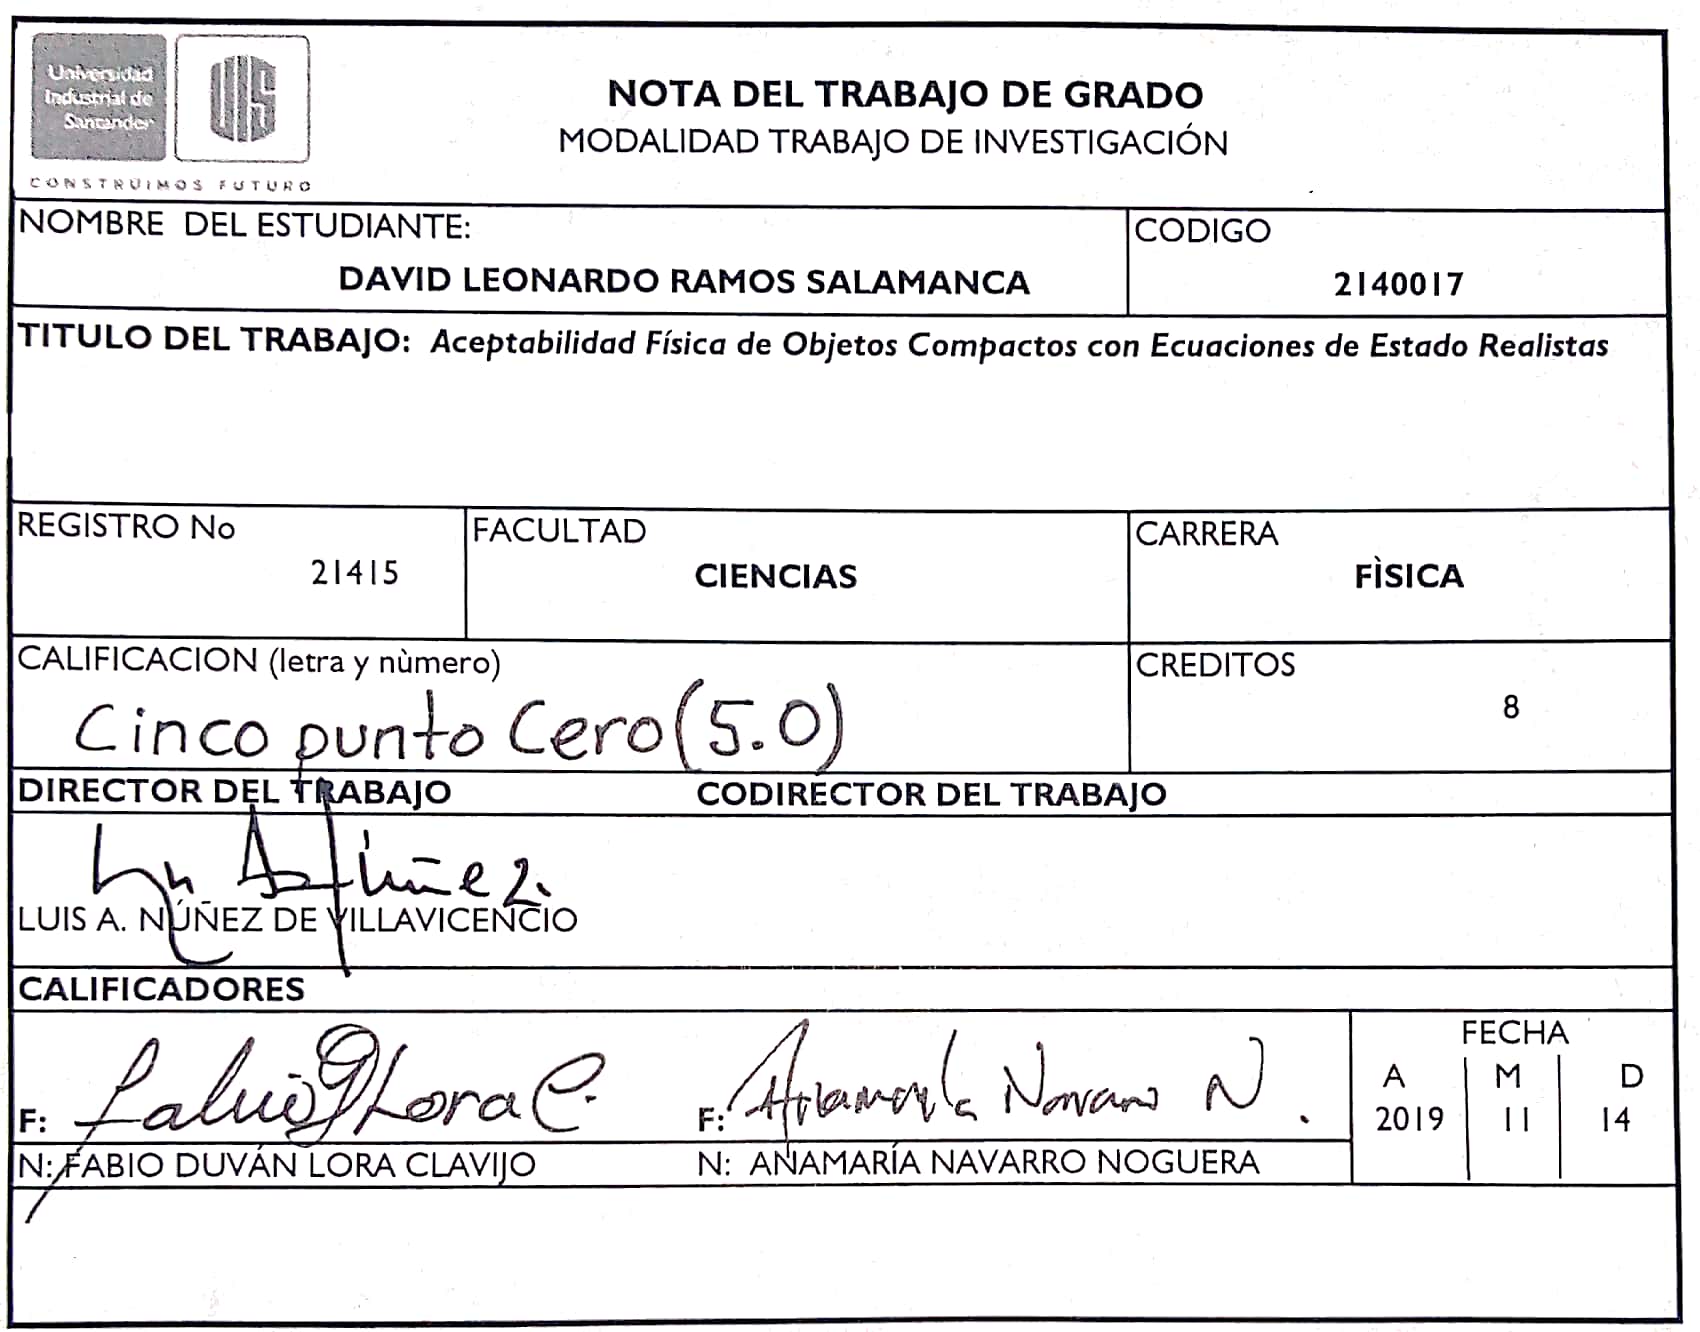 Universidad
Industrial de
Santander
UIS
CONSTRUIMOS FUTURO
NOTA DEL TRABAJO DE GRADO
MODALIDAD TRABAJO DE INVESTIGACIÓN
NOMBRE DEL ESTUDIANTE:
DAVID LEONARDO RAMOS SALAMANCA
CODIGO
2140017
TITULO DEL TRABAJO: Aceptabilidad Física de Objetos Compactos con Ecuaciones de Estado Realistas
REGISTRO No
21415
FACULTAD
CIENCIAS
CARRERA
FÌSICA
CALIFICACION (letra y nùmero)
Cinco punto Cero (5.0)
CREDITOS
8
DIRECTOR DEL TRABAJO
CODIRECTOR DEL TRABAJO
LUIS A. NÚÑEZ DE VILLAVICENCIO
CALIFICADORES
F: Fabio D Lora C.
F: Anamaría Navarro N.
FECHA
A M D
2019 11 14
N: FABIO DUVÁN LORA CLAVIJO
N: ANAMARÍA NAVARRO NOGUERA